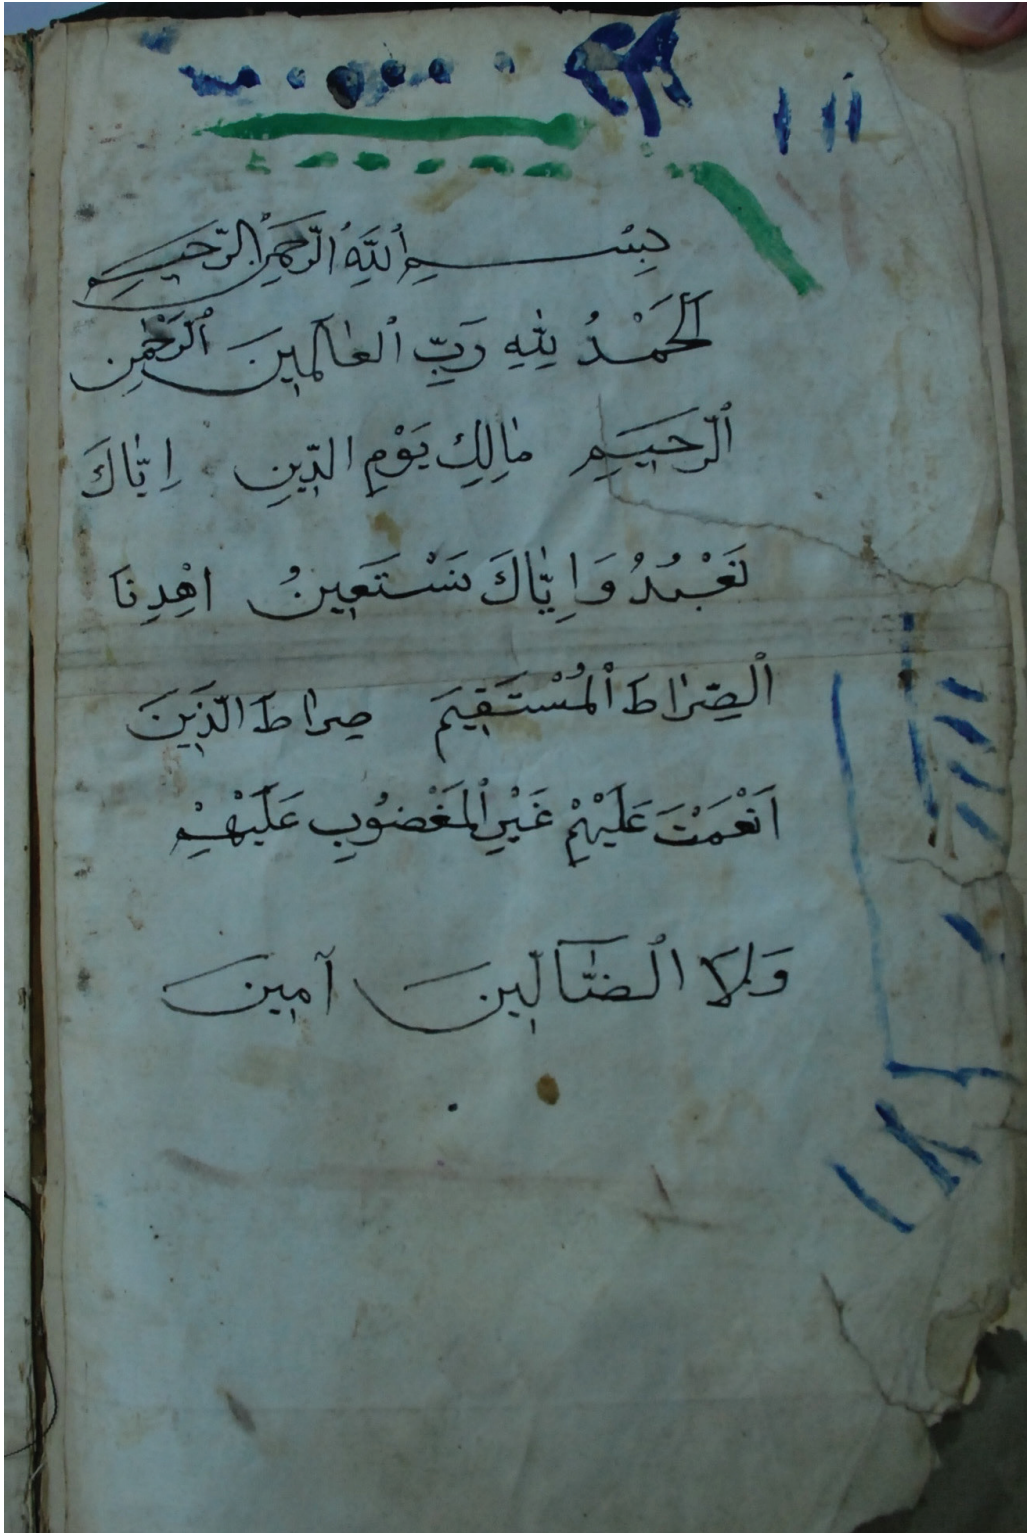 بِسْمِ ٱللَّهِ ٱلرَّحْمَٰنِ ٱلرَّحِيمِ
اَلْحَمْدُ لِلّٰهِ رَبِّ ٱلْعٰالَمِينَ ٱلرَّحْمٰنِ
ٱلرَّحِيمِ مٰالِكِ يَوْمِ الدِّينِ اِيّٰاكَ
نَعْبُدُ وَاِيّٰاكَ نَسْتَعِينُ اهْدِنَا
ٱلصِّرٰاطَ ٱلْمُسْتَقِيمَ صِرٰاطَ الَّذِينَ
اَنْعَمْتَ عَلَيْهِمْ غَيْرِ ٱلْمَغْضُوبِ عَلَيْهِمْ
وَلَا ٱلضّٰالِّينَ آمِينَ